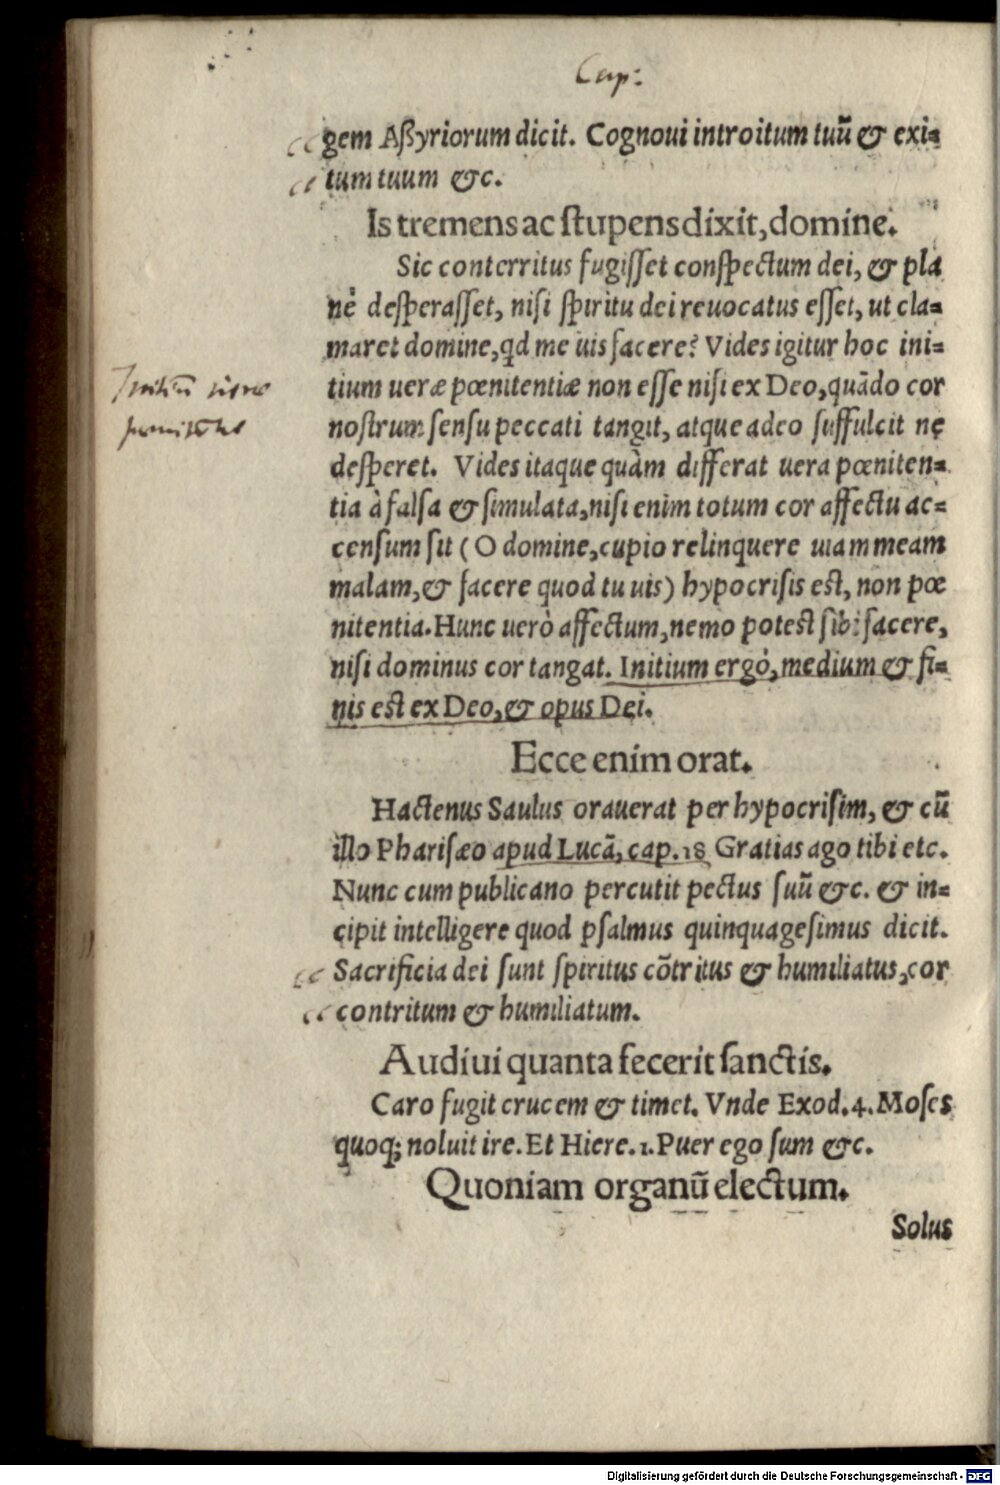 Cap:
gem Aßyriorum dicit. Cognoui introitum tuū & exi=
tum tuum &c.
Is tremens ac stupens dixit, domine.
Sic conterritus fugisset conspectum dei, & pla
nè desperasset, nisi spiritu dei reuocatus esset, ut cla=
maret domine, qd me uis facere? Vides igitur hoc ini=
tium ueræ pœnitentiæ non esse nisi ex Deo, quādo cor
Initiū uerae
nostrum sensu peccati tangit, atque adeo suffulcit ne
poenitētiae
desperet. Vides itaque quàm differat uera pœniten=
tia à falsa & simulata, nisi enim totum cor affectu ac=
censum sit (O domine, cupio relinquere uiam meam
malam, & facere quod tu uis) hypocrisis est, non pœ
nitentia. Hunc uerò affectum, nemo potest sibi facere,
nisi dominus cor tangat. Initium ergò, medium & fi=
nis est ex Deo, & opus Dei.
Ecce enim orat.
Hactenus Saulus orauerat per hypocrisim, & cū
illo Pharisæo apud Lucā, cap. 18 Gratias ago tibi etc.
Nunc cum publicano percutit pectus suū &c. & in=
cipit intelligere quod psalmus quinquagesimus dicit.
Sacrificia dei sunt spiritus cōtritus & humiliatus, cor
contritum & humiliatum.
Audiui quanta fecerit sanctis.
Caro fugit crucem & timet. Vnde Exod. 4. Moses
quoq; noluit ire. Et Hiere. 1. Puer ego sum &c.
Quoniam organū electum.
Solus
Digitalisierung gefördert durch die Deutsche Forschungsgemeinschaft - DFG